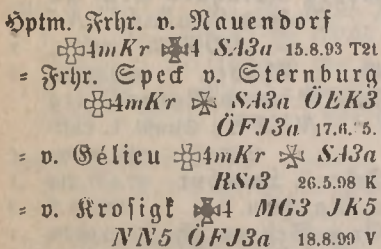 Hptm. Frhr. v. Nauendorf
4mKr 4 SA3a 15.8.93 T2t
= Frhr. Speck v. Sternburg
4mKr SA3a ÖEK3
ÖFJ3a 17.6.
= v. Gélieu 4mKr SA3a
26.5.98 K
= v. Krosigk 4 MG3 JK5
NN5 ÖFJ3a 18.8.99 V